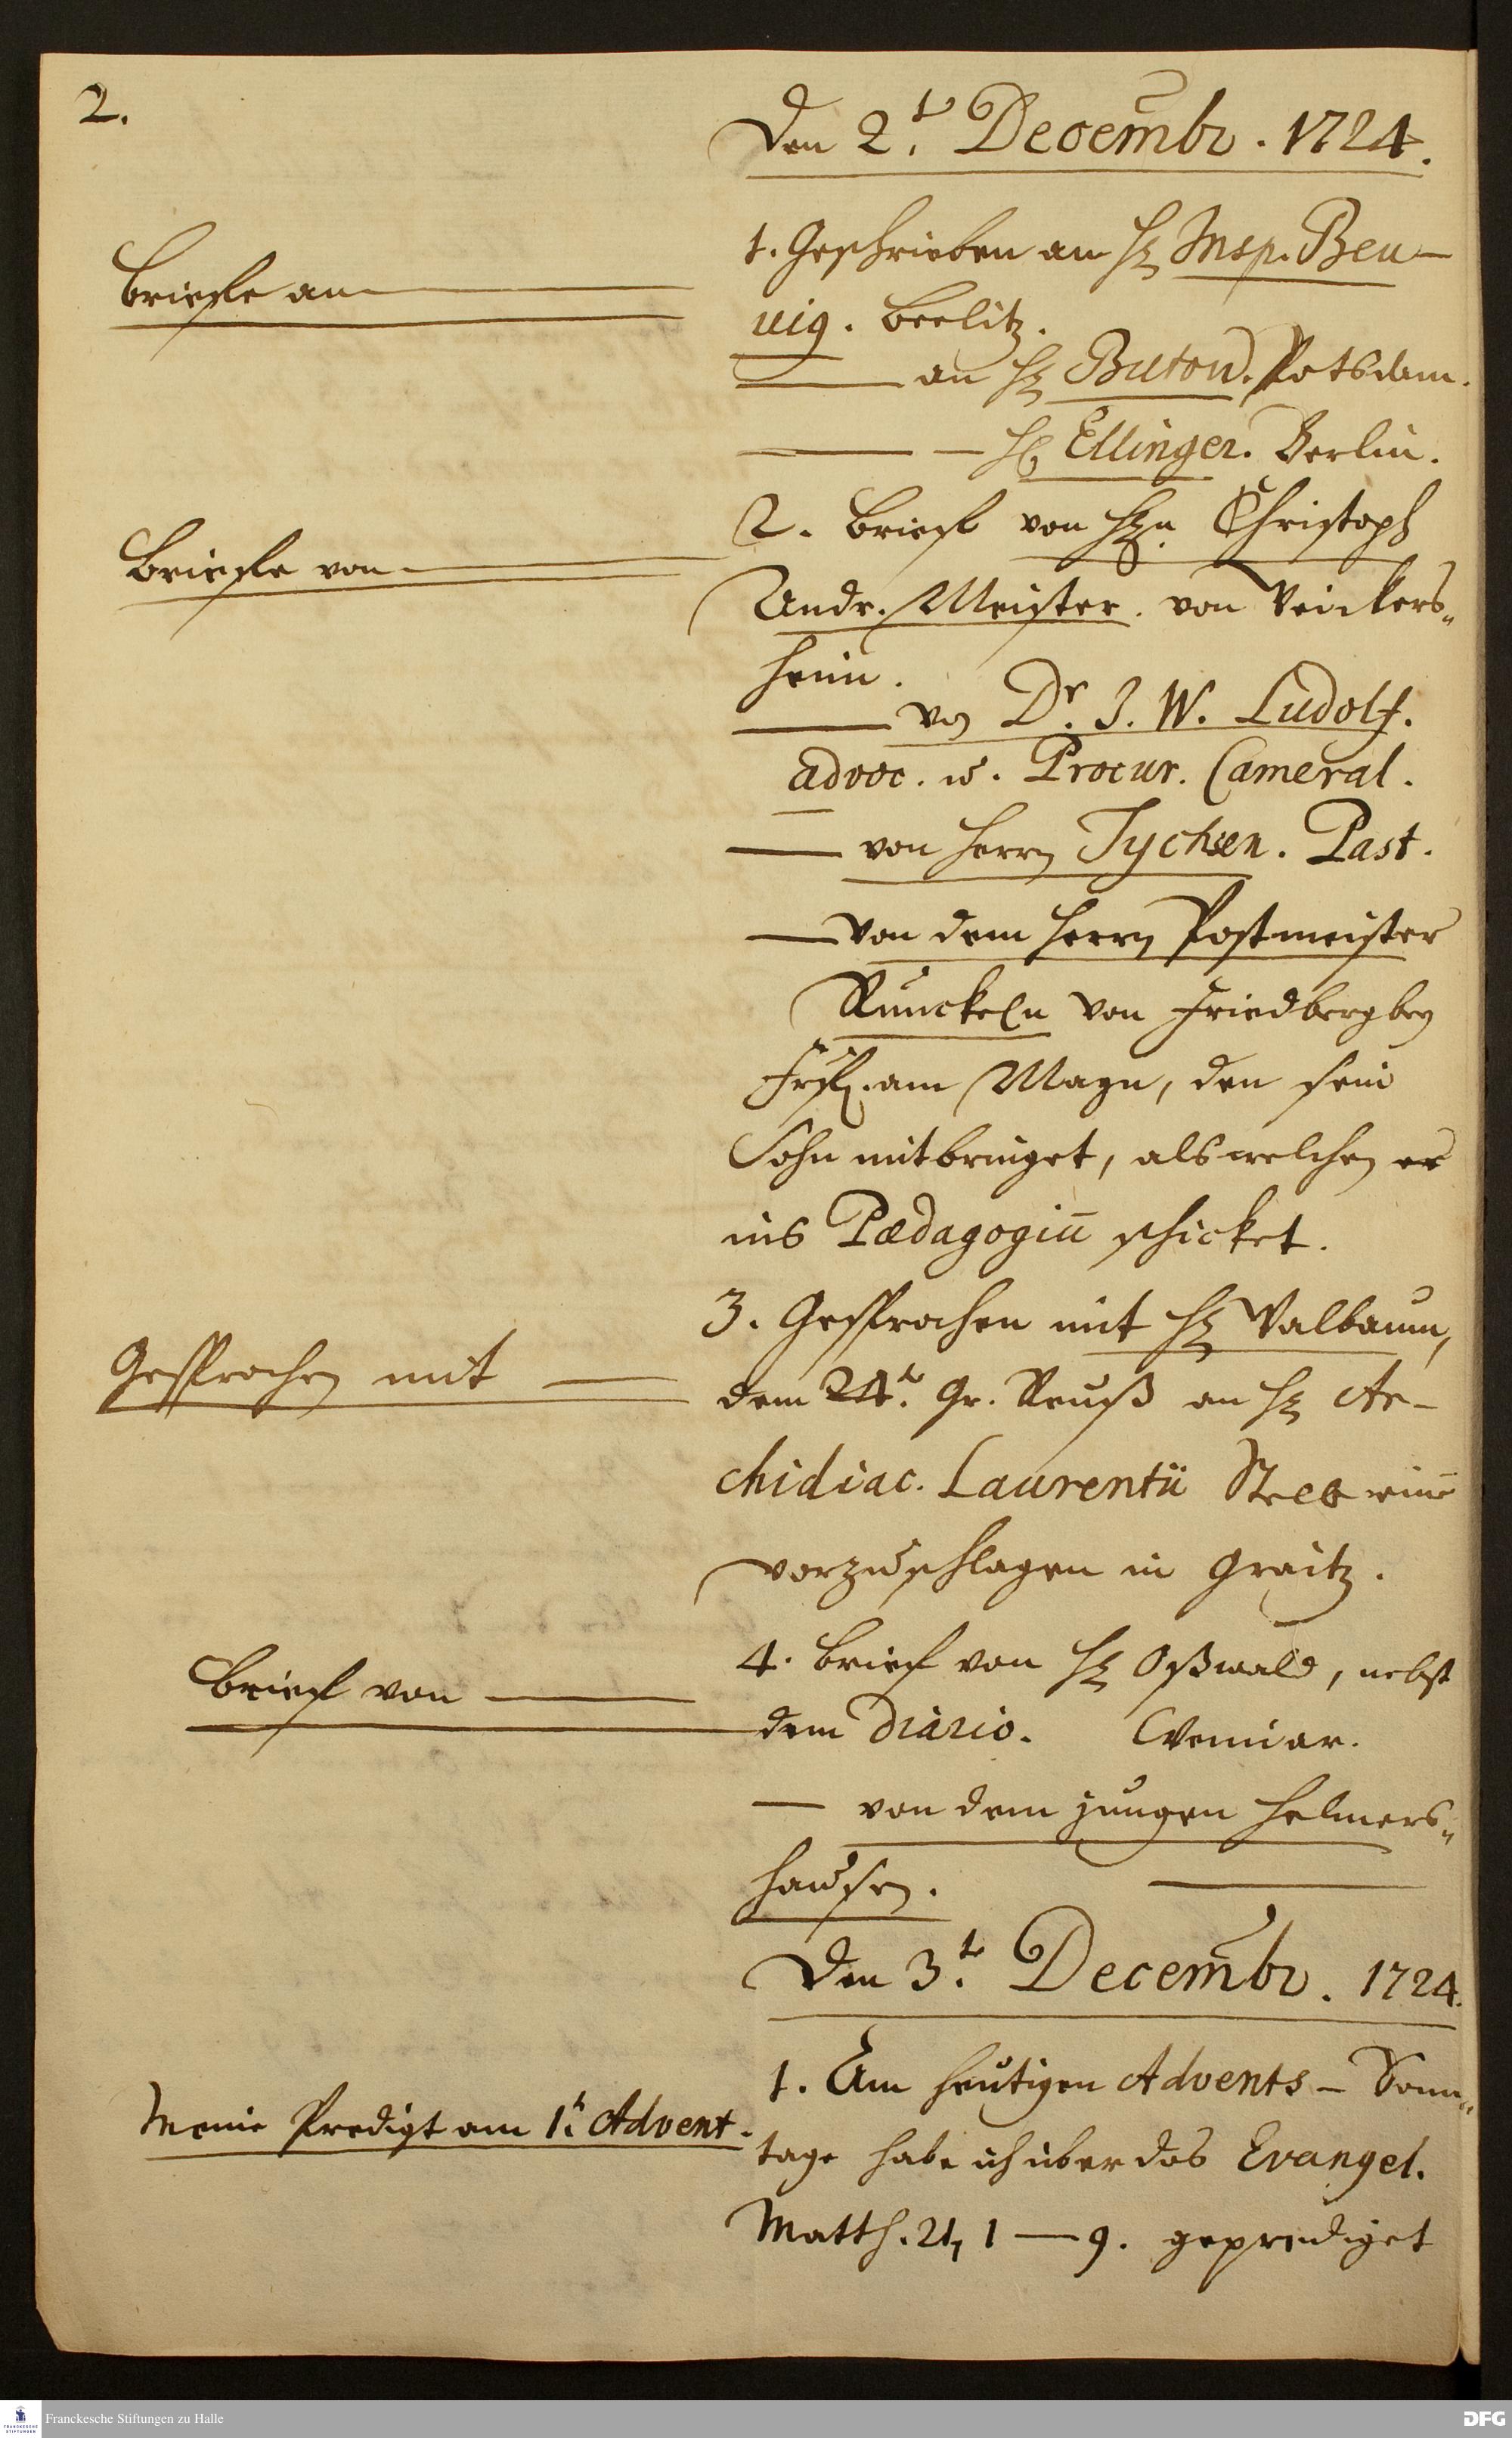 2.
Den 2.t Decembr. 1724.
Briefe an
1. Geschrieben an H. Insp. Beu-
uig. Beelitz.
an H. Butow. Potsdam.
H. Ellinger. Berlin.
Briefe von
2. Brief von H.n Christoph
Andr. Meister. von Veickers„
heim.
von Dr. J. W. Ludolf.
advoc. u. Procur. Cameral.
von Herrn Tychsen. Past.
von dem Herrn Postmeister
Runckeln von Friedberg bey
Frf. am Mayn, den sein
Sohn mitbringet, als welchen er
ins Pædagogiū schicket.
Gesprochen mit
3. Gesprochen mit H. Valbaum,
dem 24.t Gr. Reuß an H. Ar-
chidiac. Laurentii Stelle einē
vorzuschlagen in Graitz.
Brief von
4. Brief von H. Oßwald, nebst
dem Diario. Weimar.
von dem jungen Helmers„
hausen.
Den 3.t Decembr. 1724.
Meine Predigt am 1.t Advent.
1. Am heutigen Advents-Sonn„
tage habe ich über das Evangel.
Matth. 21, 1 — 9. geprediget
Franckesche Stiftungen zu Halle
DFG